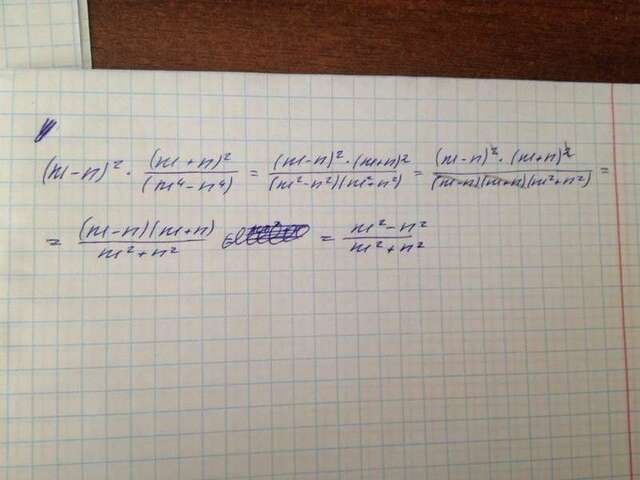 (m-n)² · (m+n)²/(m⁴-n⁴) = (m-n)²·(m+n)²/(m²-n²)(m²+n²) = (m-n)²·(m+n)²/(m-n)(m+n)(m²+n²) =
= (m-n)(m+n)/m²+n² = m²-n²/m²+n²